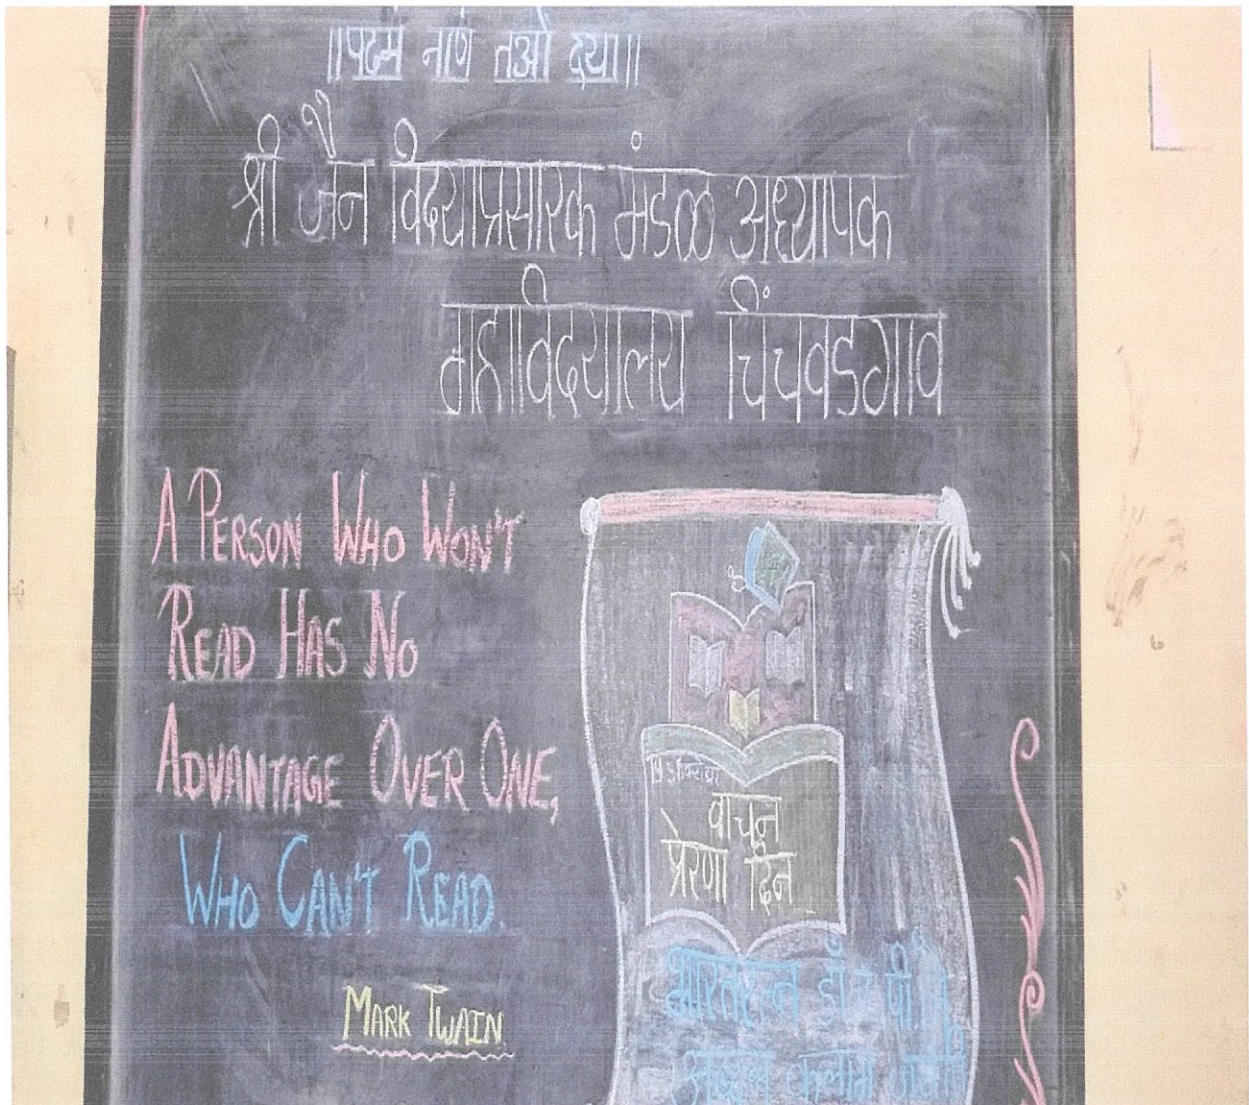 ॥पढमं नाणं तओ दया॥
श्री जैन विद्याप्रसारक मंडळ अध्यापक
महाविद्यालय चिंचवडगाव
A PERSON WHO WON'T
READ HAS NO
ADVANTAGE OVER ONE,
WHO CAN'T READ.
MARK TWAIN
१५ ऑक्टोबर
वाचन
प्रेरणा दिन
भारतरत्न डॉ ए पी जे
अब्दुल कलाम जयंती